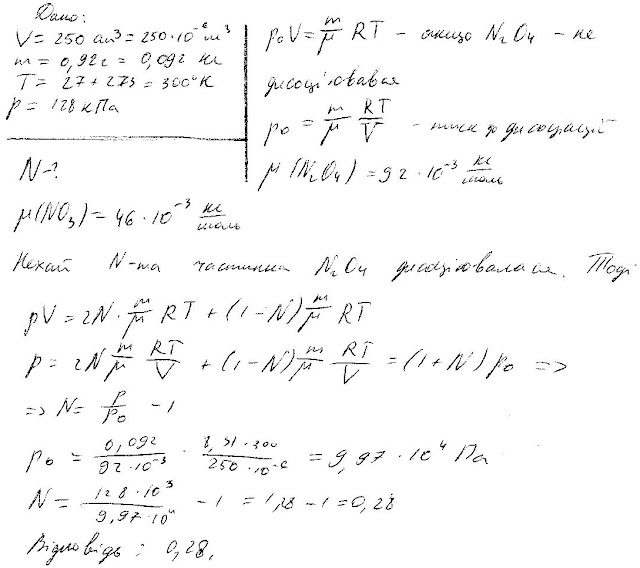 Дано:
V = 250 см³ = 250·10⁻⁶ м³
m = 0,92г = 0,092 кг
T = 27 + 273 = 300°K
p = 128 кПа
N-?
μ(NO₃) = 46·10⁻³ кг/моль
p₀V = m/μ RT - якщо N₂O₄ - не
дисоціювавав
p₀ = m/μ RT/V - тиск до дисоціації
μ(N₂O₄) = 92·10⁻³ кг/моль
Нехай N-та частинка N₂O₄ дисоціювалася. Тоді
pV = 2N·m/μ RT + (1-N) m/μ RT
p = 2N m/μ RT/V + (1-N) m/μ RT/V = (1+N) p₀ =>
=> N = p/p₀ - 1
p₀ = 0,092/92·10⁻³ · 8,31·300/250·10⁻⁶ = 9,97·10⁴ Па
N = 128·10³/9,97·10⁴ - 1 = 1,28 - 1 = 0,28
Відповідь: 0,28.